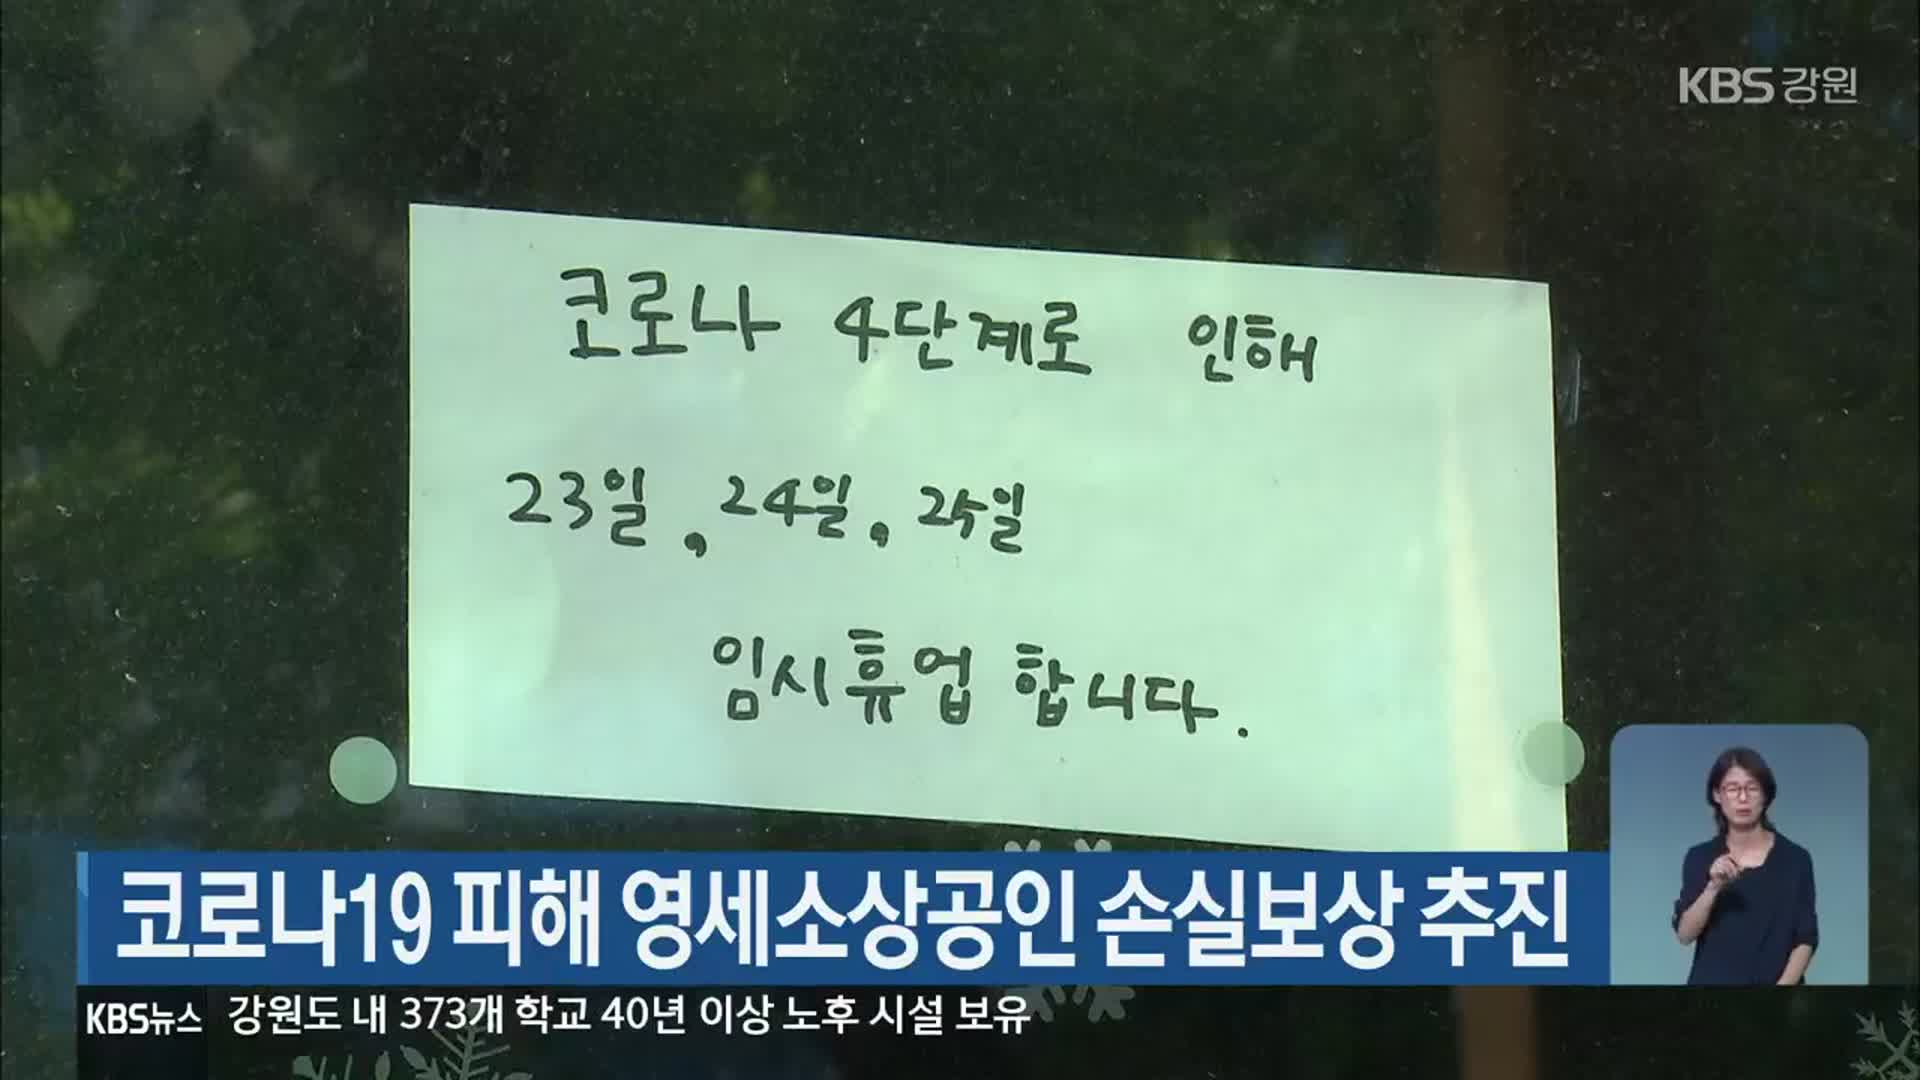 KBS 강원
코로나 4단계로 인해
23일, 24일, 25일
임시휴업 합니다.
코로나19 피해 영세소상공인 손실보상 추진
KBS뉴스 강원도 내 373개 학교 40년 이상 노후 시설 보유